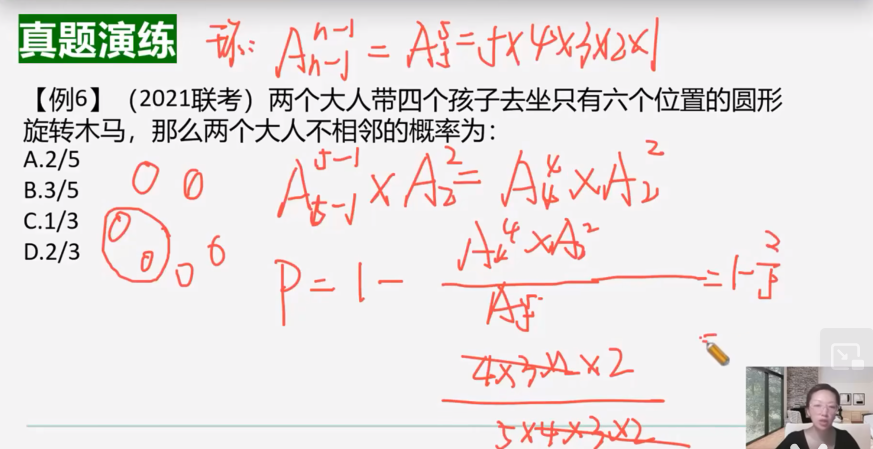 真题演练
环: A_{n-1}^{n-1} = A_5^5 = 5×4×3×2×1
【例6】（2021联考）两个大人带四个孩子去坐只有六个位置的圆形
旋转木马，那么两个大人不相邻的概率为：
A.2/5
B.3/5
C.1/3
D.2/3
A_{5-1}^{5-1} × A_2^2 = A_4^4 × A_2^2
P = 1 - \frac{A_4^4 × A_2^2}{A_5^5} = 1 - \frac{2}{5}
\frac{4×3×2×2}{5×4×3×2}
=